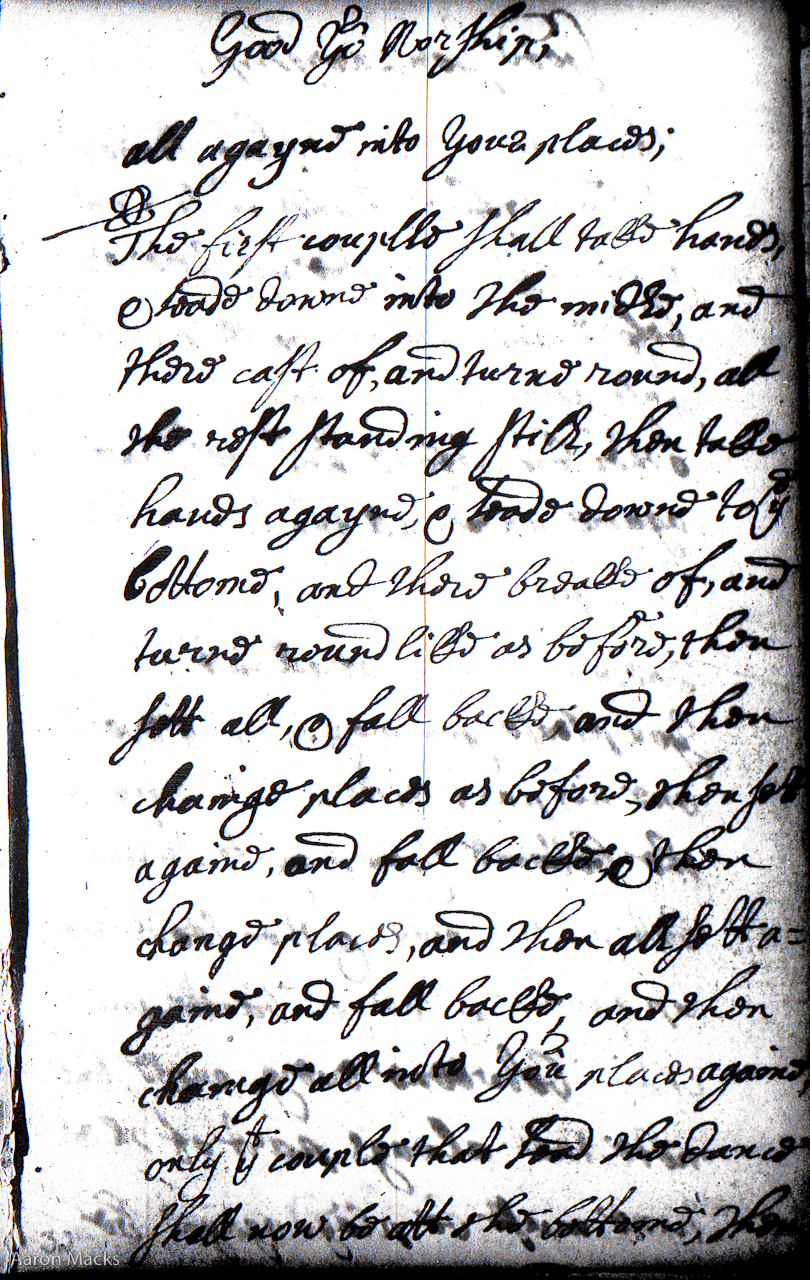 Good Yor Worship,
all agayne into Your places;
The first couplle shall take hands,
& leade downe into the midle, and
there cast of, and turne round, all
the rest standing still, then take
hands agayne, & leade downe to ye
bottome, and there breake of, and
turne round like as before, then
sett all, & fall backe, and then
chainge places as before, then sett
againe, and fall backe, & then
change places, and then all sett a=
gaine, and fall backe, and then
chainge all into Your places againe,
only yt couple that lead the dance
shall now be att the bottome, then
Aaron Macks